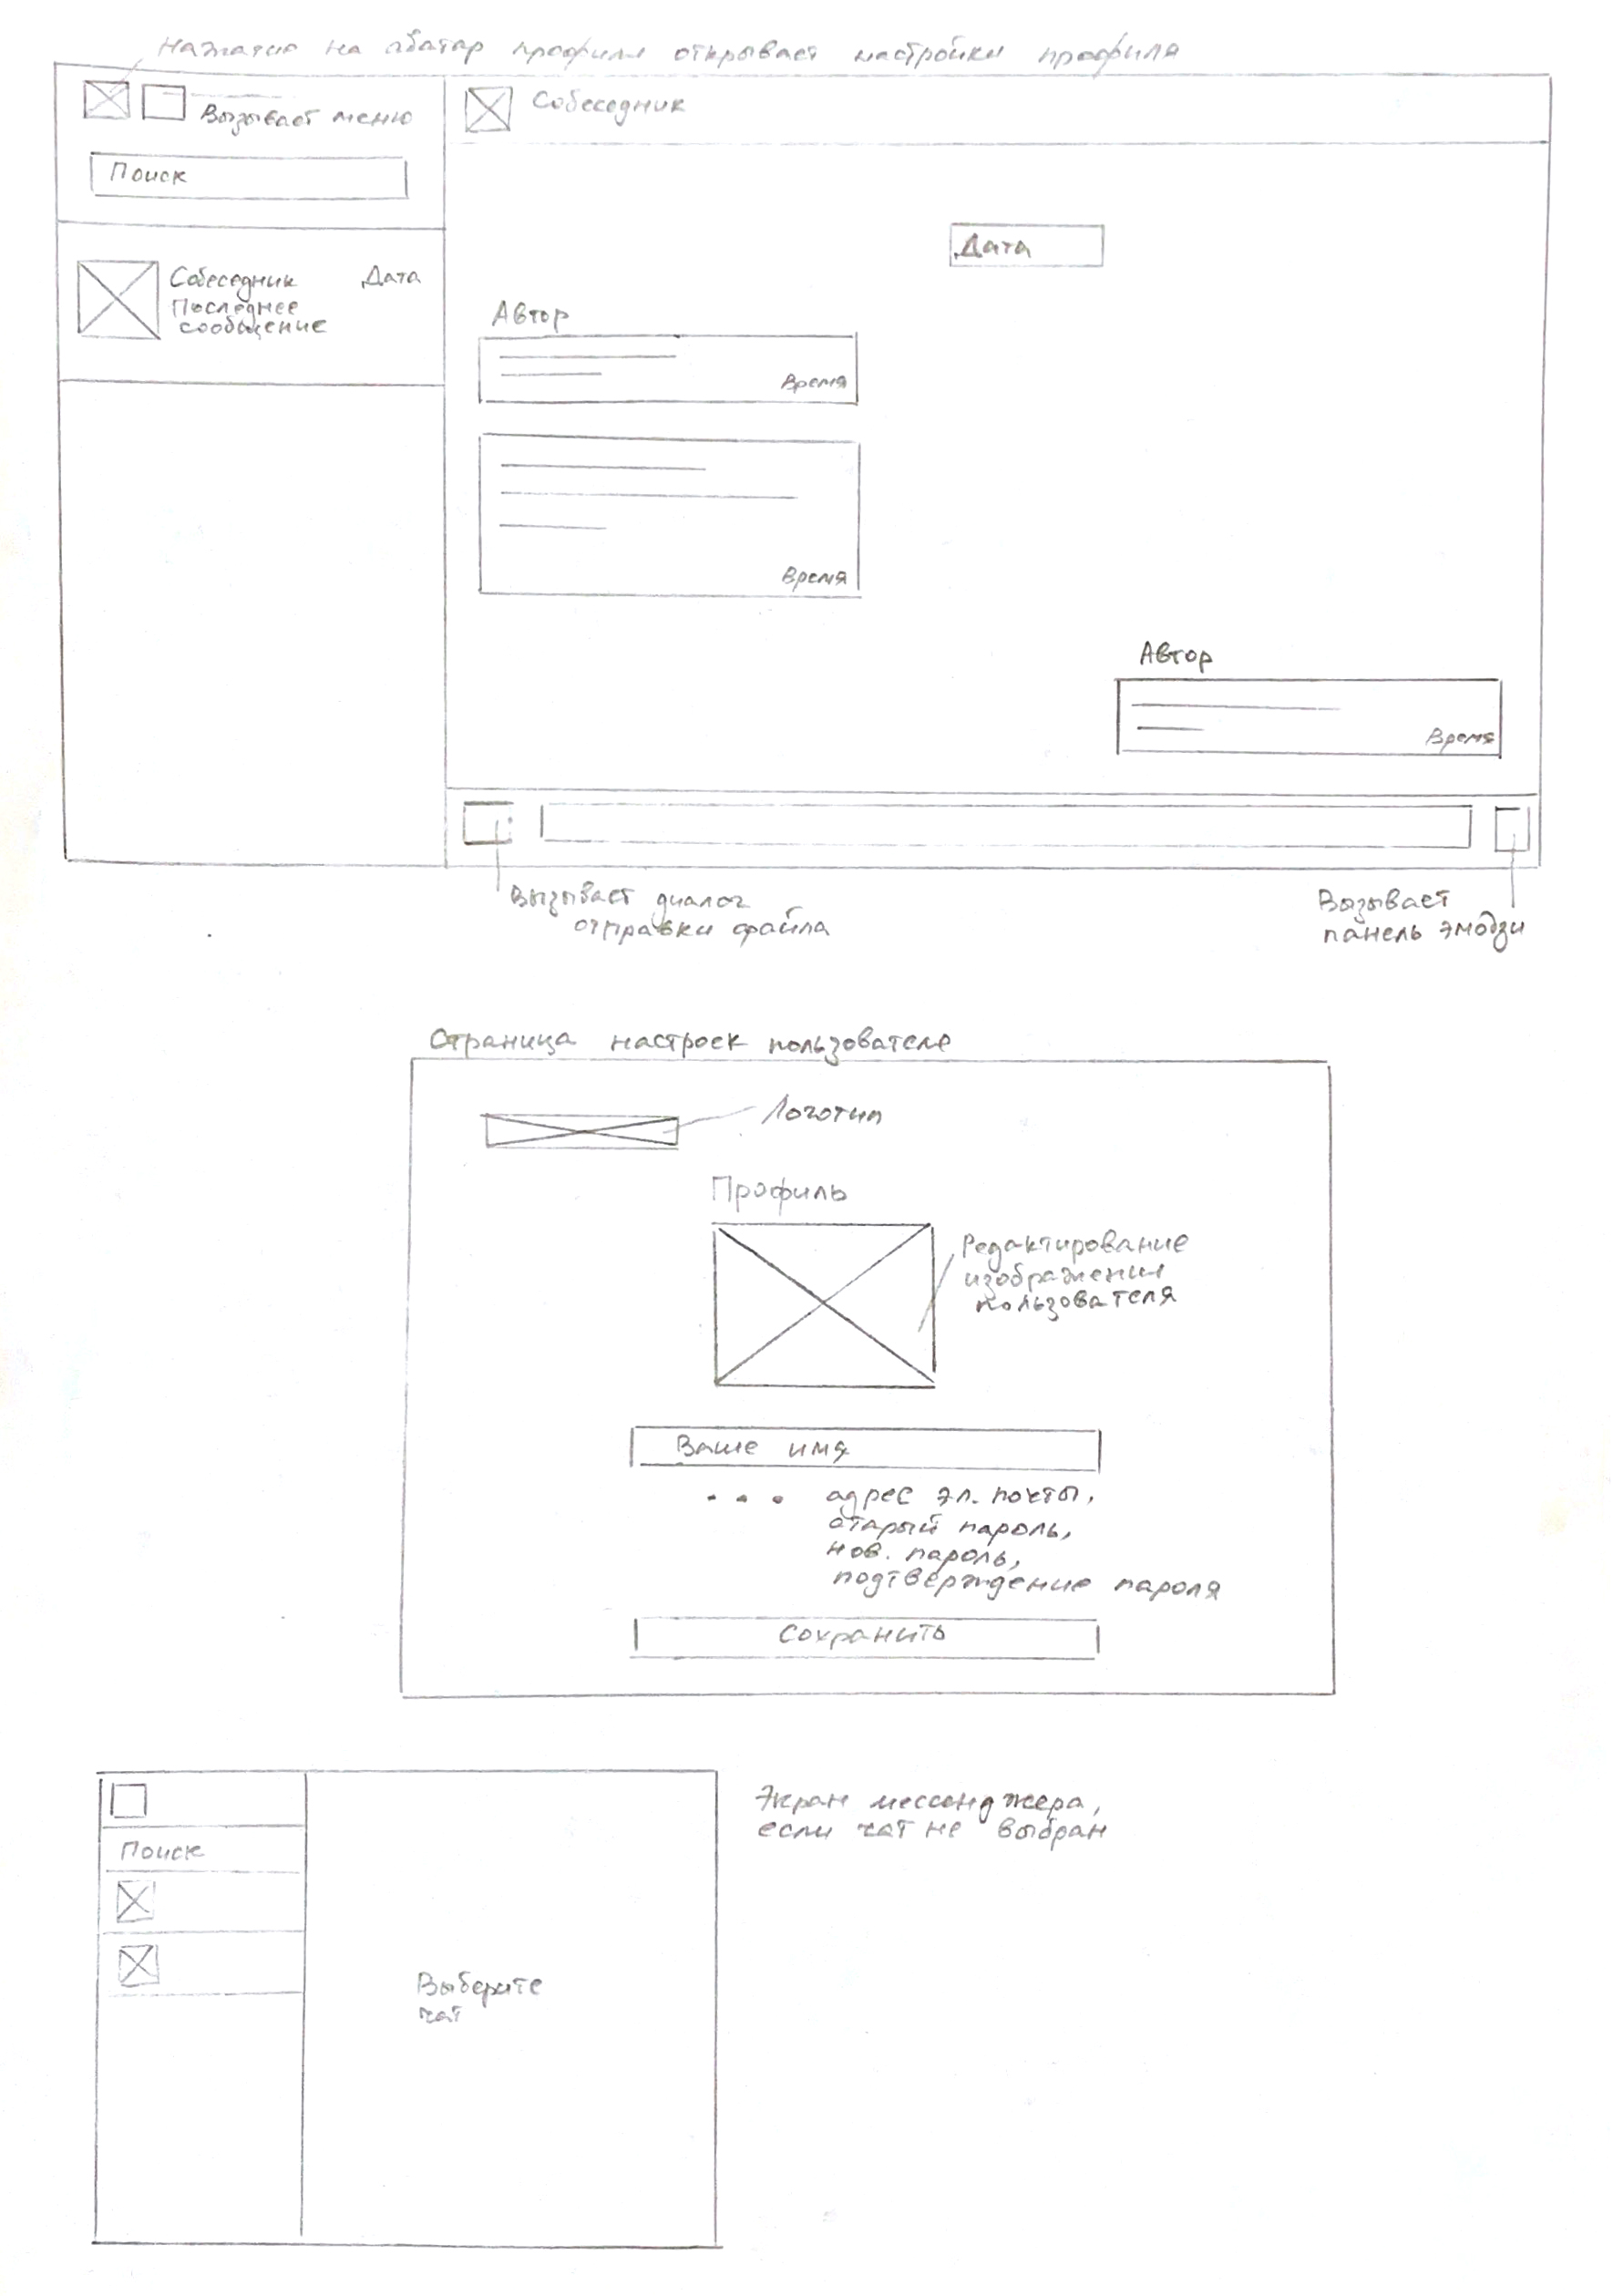 Нажатие на аватар профиля открывает настройки профиля
Вызывает меню
Поиск
Собеседник Дата
Последнее
сообщение
Собеседник
Дата
Автор
Время
Время
Автор
Время
Вызывает диалог
отправки файла
Вызывает
панель эмодзи
Страница настроек пользователя
Логотип
Профиль
Редактирование
изображения
пользователя
Ваше имя
... адрес эл. почты,
старый пароль,
нов. пароль,
подтверждение пароля
Сохранить
Экран мессенджера,
если чат не выбран
Поиск
Выберите
чат